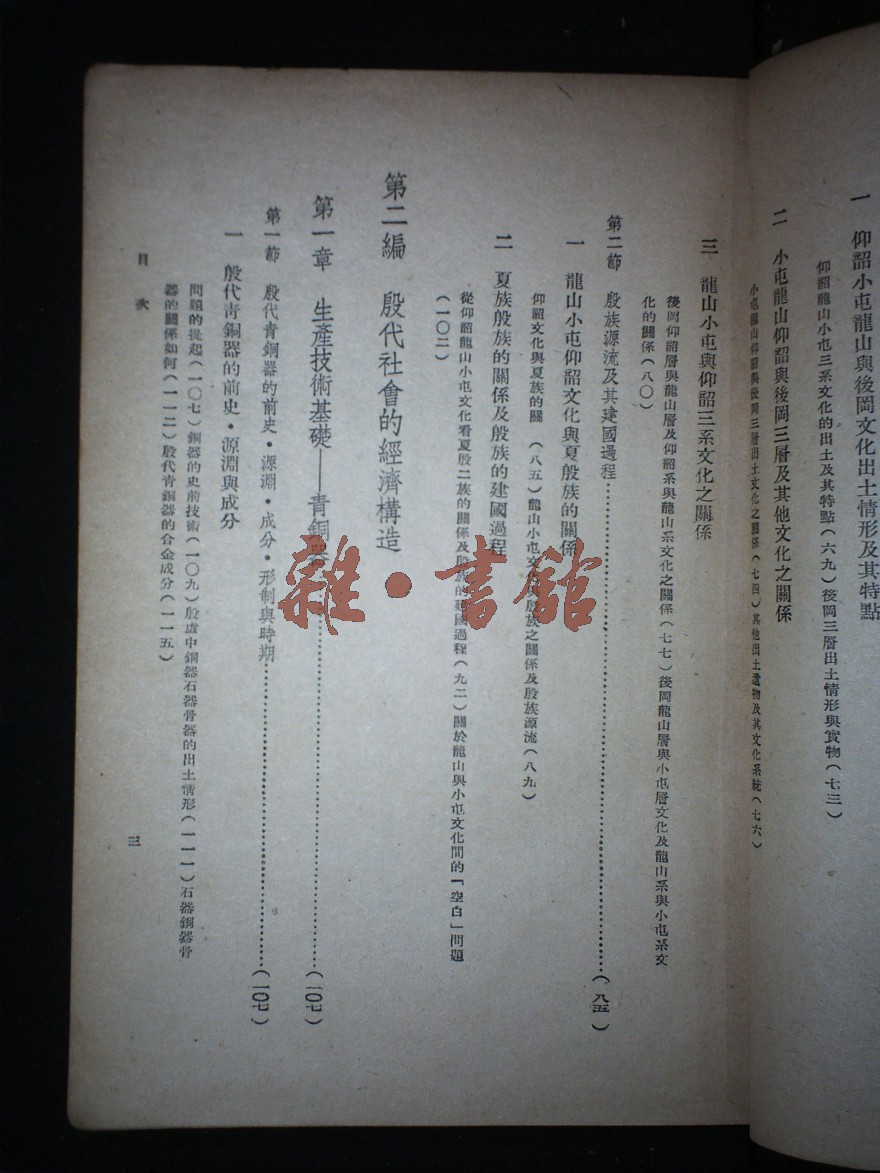 一　仰韶小屯龍山與後岡文化出土情形及其特點
仰韶龍山小屯三系文化的出土及其特點(六九)後岡三層出土情形與實物(七三)
二　小屯龍山仰韶與後岡三層及其他文化之關係
小屯龍山仰韶與後岡三層出土文化之關係(七四)其他出土遺物及其文化系統(七六)
三　龍山小屯與仰韶三系文化之關係
後岡仰韶層與龍山層及仰韶系與龍山系文化之關係(七七)後岡龍山層與小屯層文化及龍山系與小屯系文
化的關係(八〇)
第二節　殷族源流及其建國過程……(八五)
一　龍山小屯仰韶文化與夏殷族的關係
仰韶文化與夏族的關　(八五)龍山小屯文化與殷族之關係及殷族源流(八九)
二　夏族殷族的關係及殷族的建國過程
從仰韶龍山小屯文化看夏殷二族的關係及殷族的建國過程(九二)關於龍山與小屯文化間的「空白」問題
(一〇二)
第二編　殷代社會的經濟構造
第一章　生產技術基礎——青銅器……(一〇七)
第一節　殷代青銅器的前史・源淵・成分・形制與時期……(一〇七)
一　殷代青銅器的前史・源淵與成分
問題的提起(一〇七)銅器的史前技術(一〇九)殷虛中銅器石器骨器的出土情形(一一一)石器銅器骨
器的關係如何(一一二)殷代青銅器的合金成分(一一五)
目次
三
雜・書館